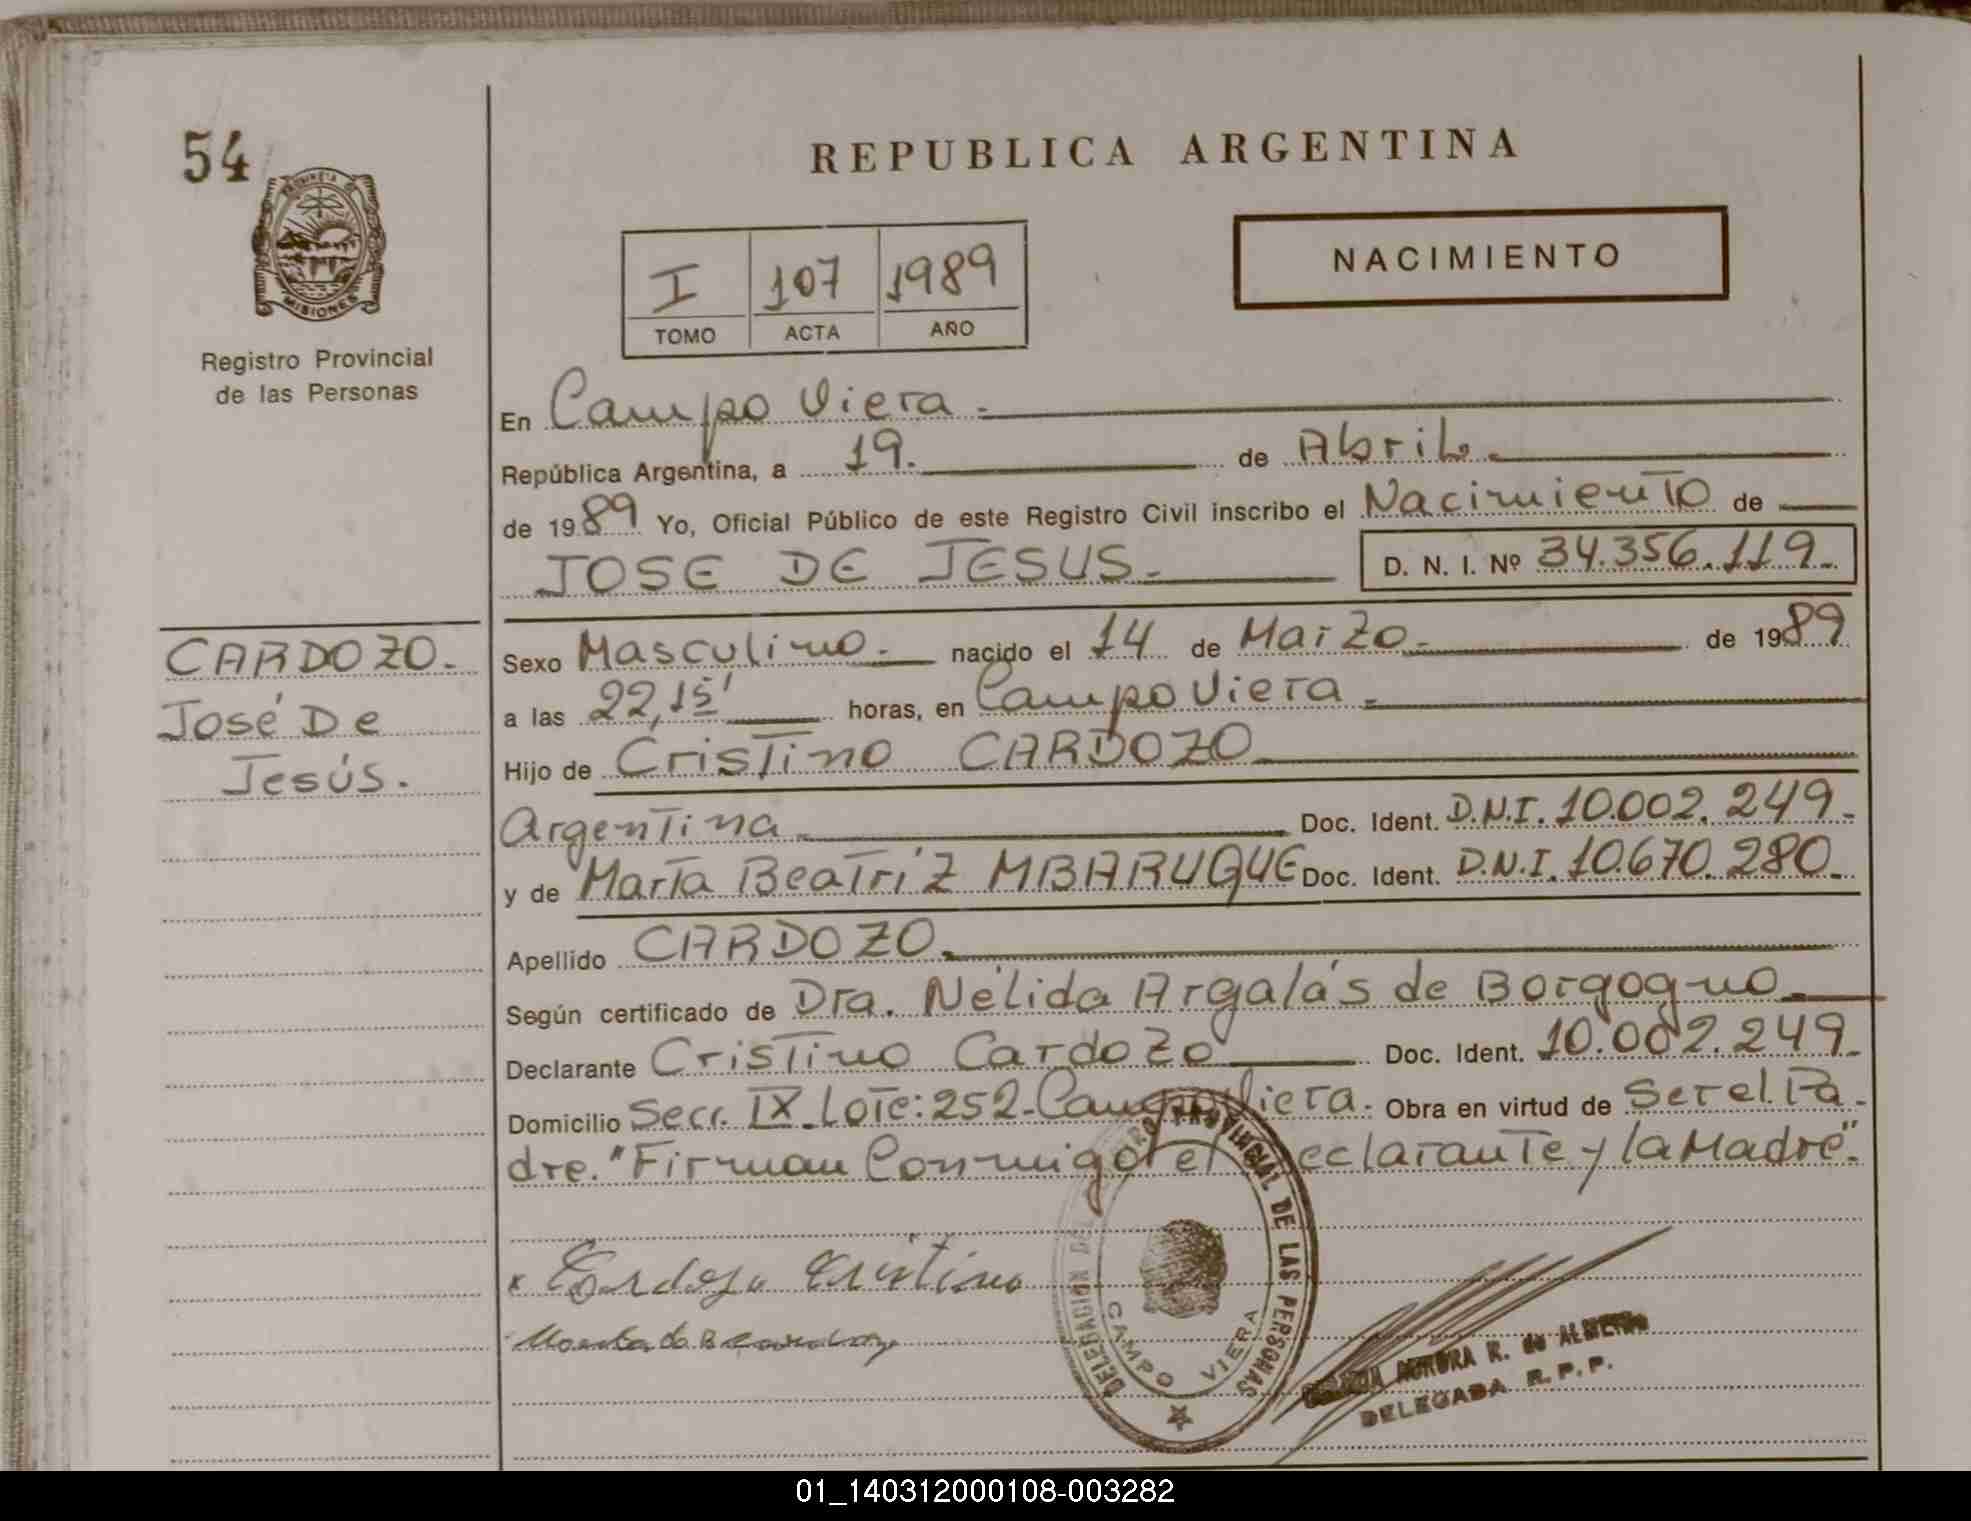 54
PROVINCIA DE
MISIONES
Registro Provincial
de las Personas
REPUBLICA ARGENTINA
I 107 1989
TOMO ACTA AÑO
NACIMIENTO
En Campo Viera.
República Argentina, a 19. de Abril.
de 1989 Yo, Oficial Público de este Registro Civil inscribo el Nacimiento de
JOSE DE JESUS. D. N. I. Nº 34.356.119.
CARDOZO.
José De
Jesús.
Sexo Masculino. nacido el 14 de Marzo. de 1989
a las 22,15' horas, en Campo Viera.
Hijo de Cristino CARDOZO
Argentina. Doc. Ident. D.N.I. 10.002.249.
y de María Beatriz MBARUQUE Doc. Ident. D.N.I. 10.670.280.
Apellido CARDOZO.
Según certificado de Dra. Nélida Argalás de Borgogno.
Declarante Cristino Cardozo Doc. Ident. 10.002.249.
Domicilio Secc. IX. Lote: 252. Campo Viera. Obra en virtud de Ser el Pa
dre. "Firman Conmigo el Declarante y la Madre".
x Cardozo Cristino
DELEGACION DEL REGISTRO PROVINCIAL DE LAS PERSONAS
CAMPO VIERA
AURORA R. de ALMEIDA
DELEGADA R.P.P.
01_140312000108-003282